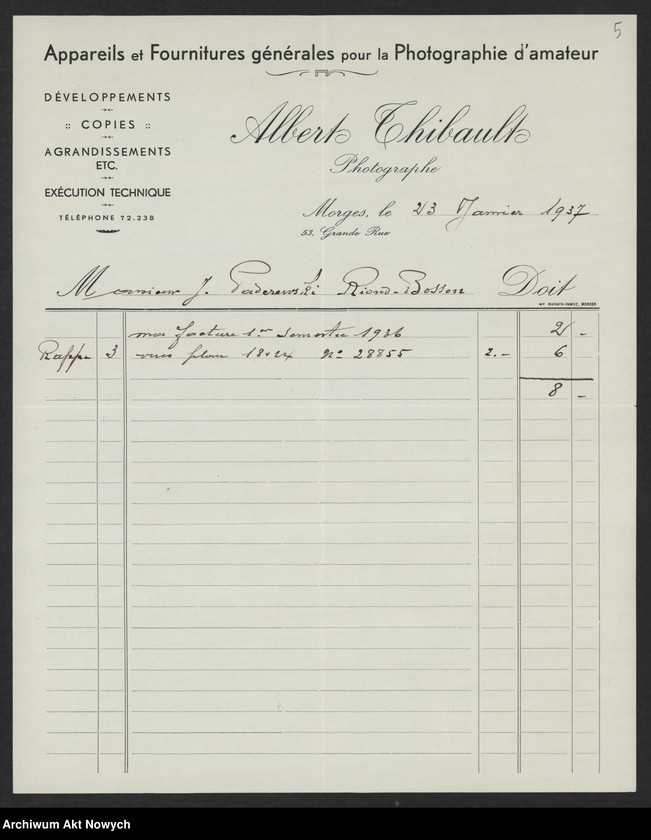 5
Appareils et Fournitures générales pour la Photographie d'amateur
DÉVELOPPEMENTS
:: COPIES ::
AGRANDISSEMENTS
ETC.
EXÉCUTION TECHNIQUE
TÉLÉPHONE 72.238
Albert Thibault
Photographe
Morges, le 23 Janvier 1937
53, Grande Rue
Monsieur J. Paderewski Riond-Bosson Doit
ma facture 1er Semestre 1936 2 -
3 vues plan 18x24 No 28855 2.- 6
8 -
Archiwum Akt Nowych